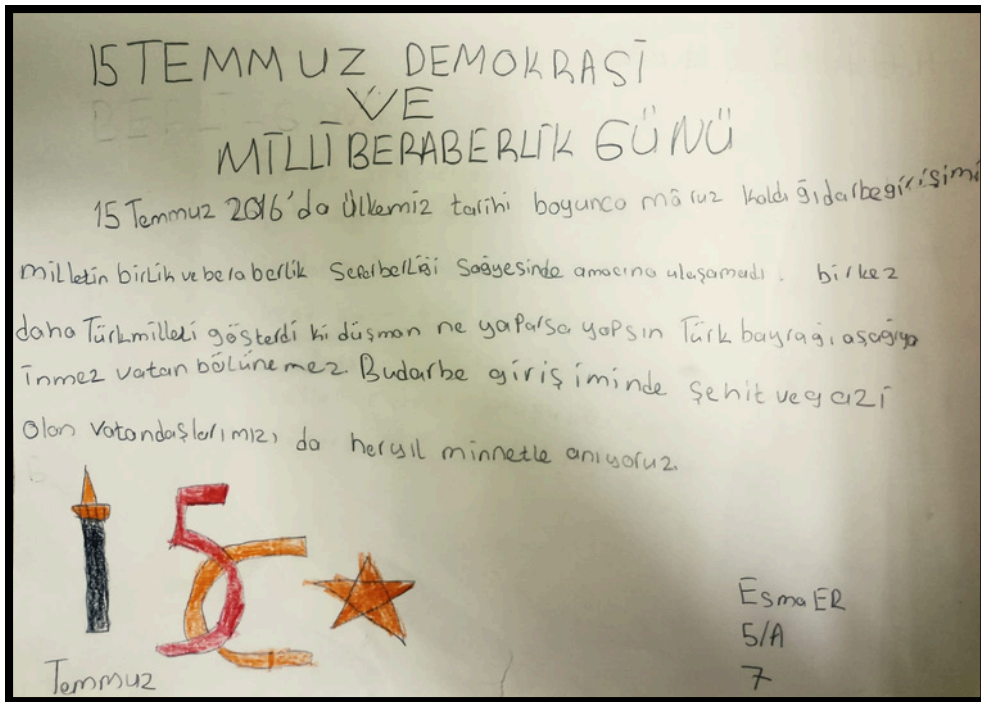 15 TEMMUZ DEMOKRASİ
VE
MİLLİ BERABERLİK GÜNÜ
15 Temmuz 2016'da Ülkemiz tarihi boyunca mâruz kaldığı darbe girişimi
milletin birlik ve beraberlik Seferberliği Sağyesinde amacına ulaşamadı. birkez
daha Türk milleti gösterdi ki düşman ne yaparsa yapsın Türk bayrağı aşağıya
inmez vatan bölünemez. Bu darbe girişiminde şehit ve gazi
olan vatandaşlarımızı da heryıl minnetle anıyoruz.
15
Temmuz
Esma ER
5/A
7